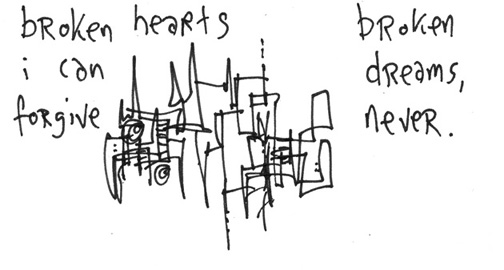 broken hearts
i can
forgive
broken
dreams,
never.